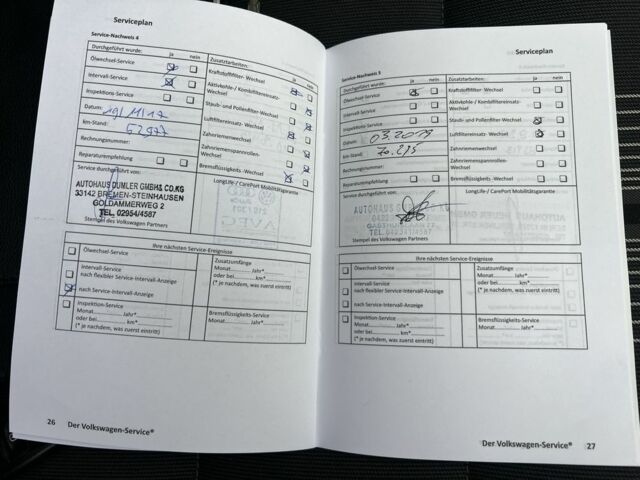 Serviceplan
Service-Nachweis 4
Durchgeführt wurde: ja nein
Ölwechsel-Service
Intervall-Service
Inspektions-Service
Datum: 19/11/17
km-Stand:
Rechnungsnummer:
Reparaturempfehlung
Service durchgeführt von:
Zusatzarbeiten: ja nein
Kraftstofffilter-Wechsel
Aktivkohle-/ Kombifiltereinsatz-
Wechsel
Staub- und Pollenfilter-Wechsel
Luftfiltereinsatz- Wechsel
Zahnriemenwechsel
Zahnriemenspannrollen-
Wechsel
Bremsflüssigkeits -Wechsel
LongLife-/ CarePort Mobilitätsgarantie
AUTOHAUS DUMLER GMBH& CO.KG
33142 BREMEN-STEINHAUSEN
GOLDAMMERWEG 2
TEL. 02954/4587
Stempel des Volkswagen Partners
Ihre nächsten Service-Ereignisse
Ölwechsel-Service
Intervall-Service
nach flexibler Service-Intervall-Anzeige
nach Service-Intervall-Anzeige
Inspektion-Service
Monat..............Jahr*..............
oder bei..............km*..............
(* je nachdem, was zuerst eintritt)
Zusatzumfänge
Monat..............Jahr*..............
oder bei..............km*..............
(* je nachdem, was zuerst eintritt)
Bremsflüssigkeits-Service
Monat..............Jahr*..............
26 Der Volkswagen-Service®
Serviceplan
Service-Nachweis 5
Durchgeführt wurde: ja nein
Ölwechsel-Service
Intervall-Service
Inspektions-Service
Datum: 03.2019
km-Stand: 70.215
Rechnungsnummer:
Reparaturempfehlung
Service durchgeführt von:
Zusatzarbeiten: ja nein
Kraftstofffilter -Wechsel
Aktivkohle-/ Kombifiltereinsatz-
Wechsel
Staub- und Pollenfilter-Wechsel
Luftfiltereinsatz- Wechsel
Zahnriemenwechsel
Zahnriemenspannrollen-
Wechsel
Bremsflüssigkeits -Wechsel
LongLife-/ CarePort Mobilitätsgarantie
AUTOHAUS
Stempel des Volkswagen Partners
Ihre nächsten Service-Ereignisse
Ölwechsel-Service
Intervall-Service
nach flexibler Service-Intervall-Anzeige
nach Service-Intervall-Anzeige
Inspektion-Service
Monat..............Jahr*..............
oder bei..............km*..............
(* je nachdem, was zuerst eintritt)
Zusatzumfänge
Monat..............Jahr*..............
oder bei..............km*..............
(* je nachdem, was zuerst eintritt)
Bremsflüssigkeits-Service
Monat..............Jahr*..............
Der Volkswagen-Service® 27